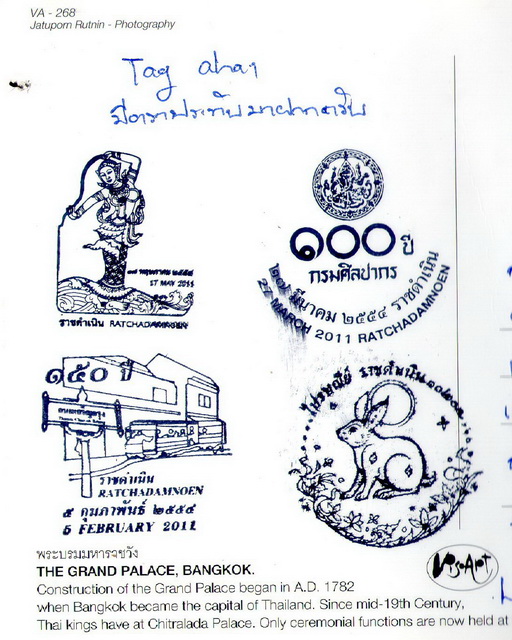 VA - 268
Jatuporn Rutnin - Photography
Tag ahan
มีตราประทับมาฝากครับ
๑๗ พฤษภาคม ๒๕๕๔
17 MAY 2011
ราชดำเนิน RATCHADAMNOEN
๑๐๐ ปี
กรมศิลปากร
๒๗ มีนาคม ๒๕๕๔ ราชดำเนิน
27 MARCH 2011 RATCHADAMNOEN
๑๕๐ ปี
ถนนเจริญกรุง
ราชดำเนิน
RATCHADAMNOEN
๕ กุมภาพันธ์ ๒๕๕๔
5 FEBRUARY 2011
ไปรษณีย์ ราชดำเนิน ๑๐๒๐๐
พระบรมมหาราชวัง
THE GRAND PALACE, BANGKOK.
Construction of the Grand Palace began in A.D. 1782
when Bangkok became the capital of Thailand. Since mid-19th Century,
Thai kings have at Chitralada Palace. Only ceremonial functions are now held at